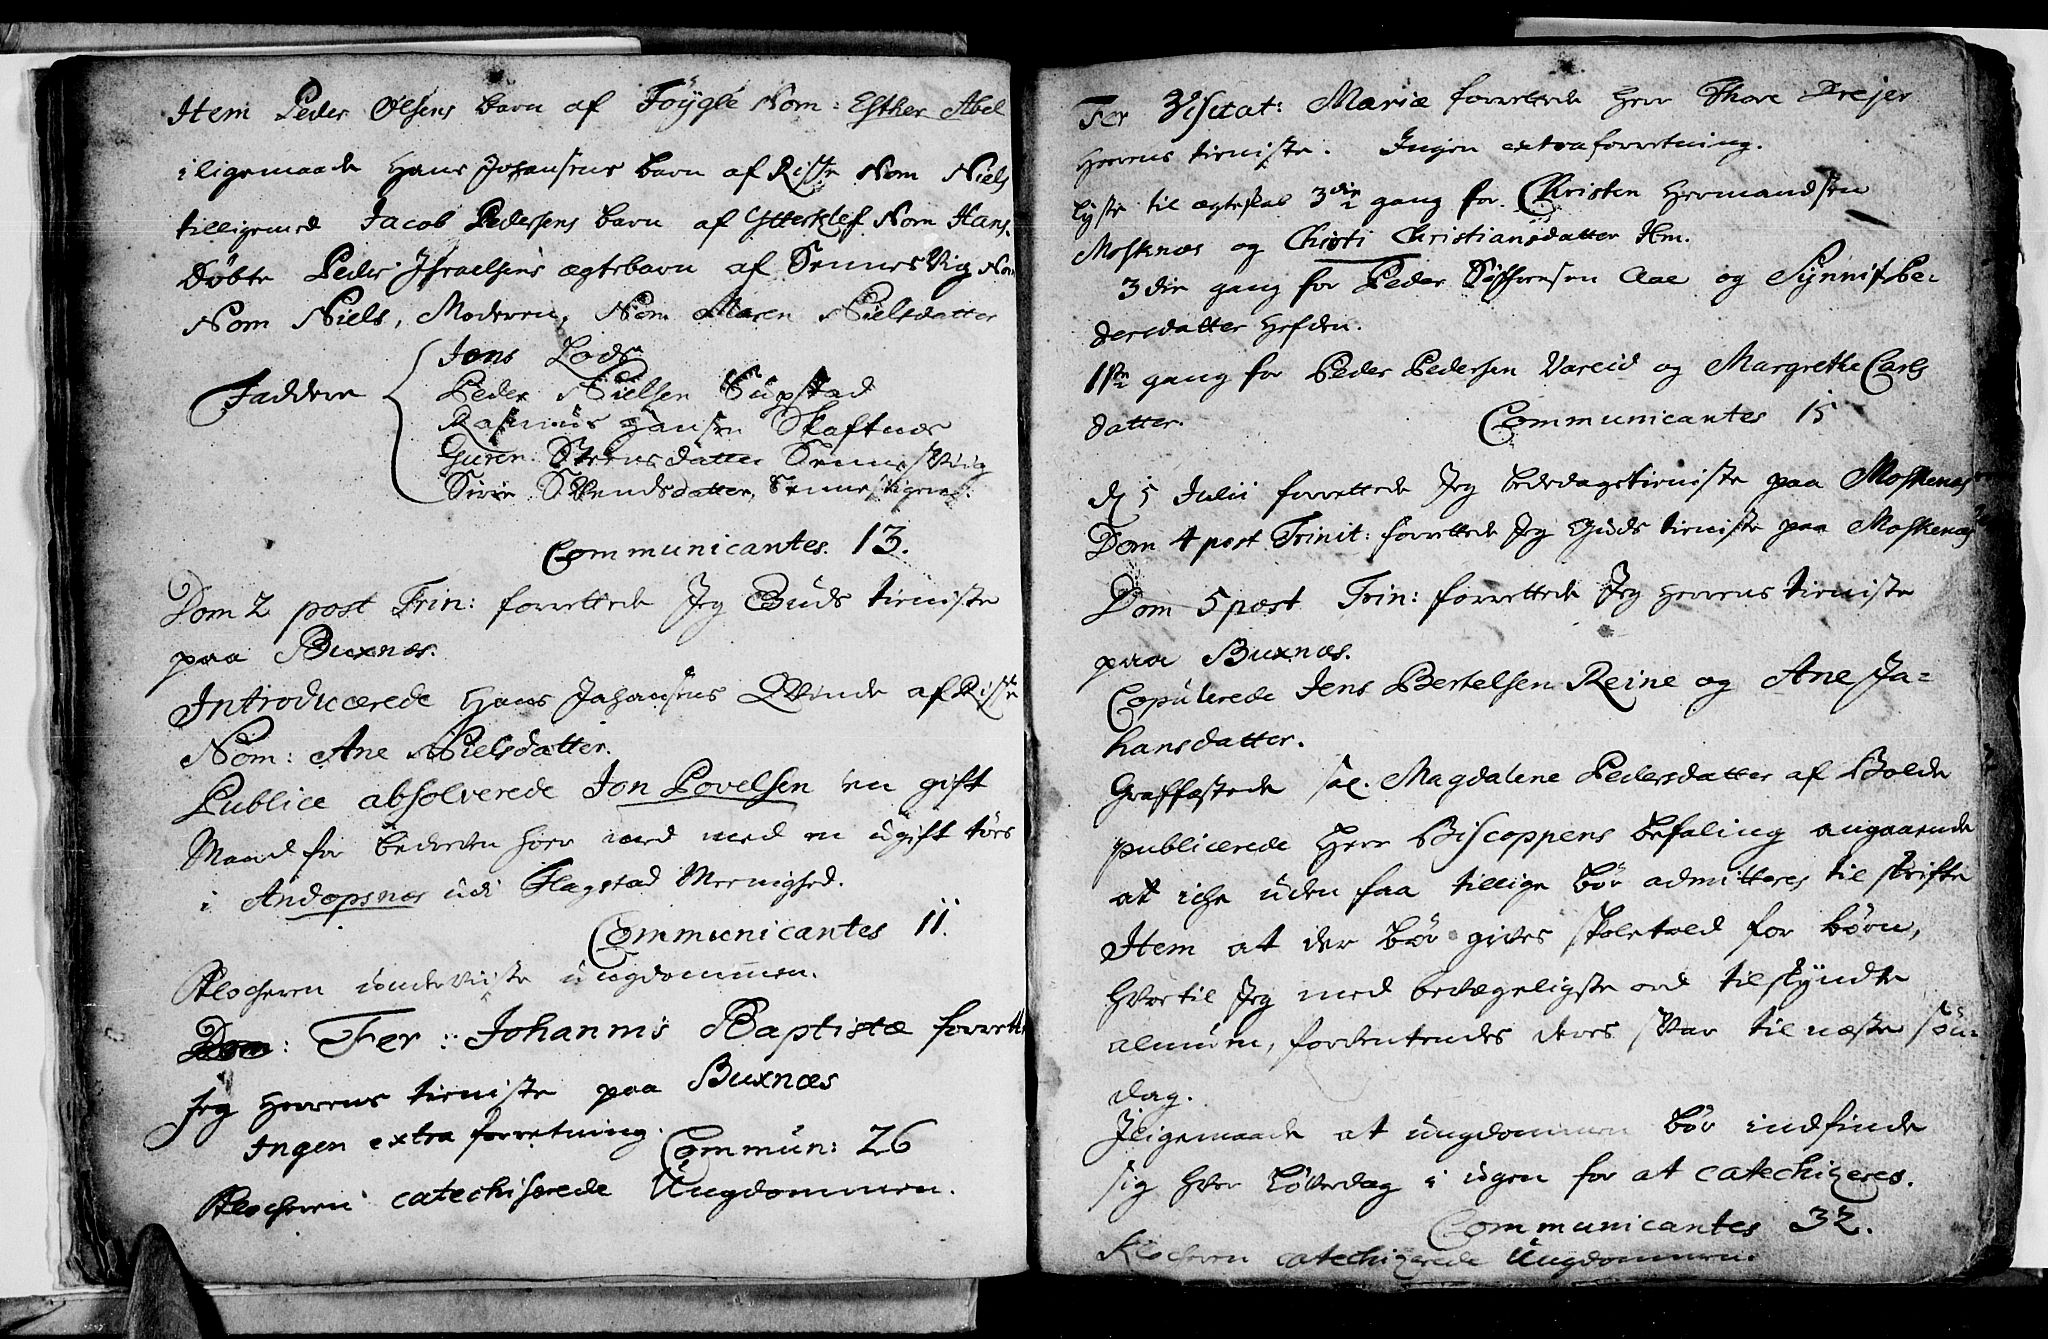 Item Peder Olsens barn af Føÿgle Nom: Esther Abel
iligemaade Hans Johansens barn af Riste Nom Niels
tilligemed Jacob Pedersens barn af Ytterklef Nom Hans.
Døbte Peder Israelsens ægtebarn af Sennesvig
Nom Niels, Moderen, Nom Maren Nielsdatter
Jens Lods
Peder Nielsen Süpstad
Faddere
Rasmus Hansen Skaftnæs
Guren Steensdatter Sennesvig
Siren Svendsdatter, Sennesvigen
Communicantes. 13.
Dom 2 post Trin: forrettede Jeg Guds tieniste
paa Buxnæs.
Introducerede Hans Johansens Qvinde af Riste
Nom: Ane Nielsdatter.
Publice absolverede Jon Povelsen en gift
Mand for bedreven hoer med en ugift tøes
i Andopsnæs udi Flagstad Menighed.
Communicantes 11.
Klocheren underviiste ungdommen.
Dom: Fer: Johannis Baptistæ forrett
Jeg Herrens tieniste paa Buxnæs
Ingen extra forretning. Commun: 26
Klocheren catechiserede Ungdommen.
Fer Visitat: Mariæ forrettede Herr Thore Drejer
Herrens tieniste. Ingen extraforretning.
Lyste til ægteskab 3die gang for Christen Hermandsen
Mosknæs og Chirsti Christiansdatter Hm.
3die gang for Peder Søfrensen Aae og Synnif Pe-
dersdatter Hefden.
1ste gang for Peder Pedersen Vareid og Margrethe Carls
datter. Communicantes 15
d 5 Julii forrettede Jeg Bededagstieniste paa Moskenæs
Dom 4 post Trinit: forrettede Jeg Guds tieniste paa Moskenæs
Dom 5 post Trin: forrettede Jeg Herrens tieniste
paa Buxnæs.
Copulerede Jens Bertelsen Reine og Ane Jo-
hansdatter.
Graffæstede sal. Magdalene Pedersdatter af Bolde
publicerede Herr Biscoppens befaling angaaende
at iche uden faa tillige bør admitteres til skrifte
Item at der bør gives skolehold for børn,
hvortil Jeg med bevægeligste ord tilskyndte
almuen, forventendes deres svar til næste søn-
dag.
Iligemaade at ungdommen bør indfinde
sig hver Løverdag i ugen for at catechizeres.
Communicantes 32.
Klocheren catechizerede Ungdommen.